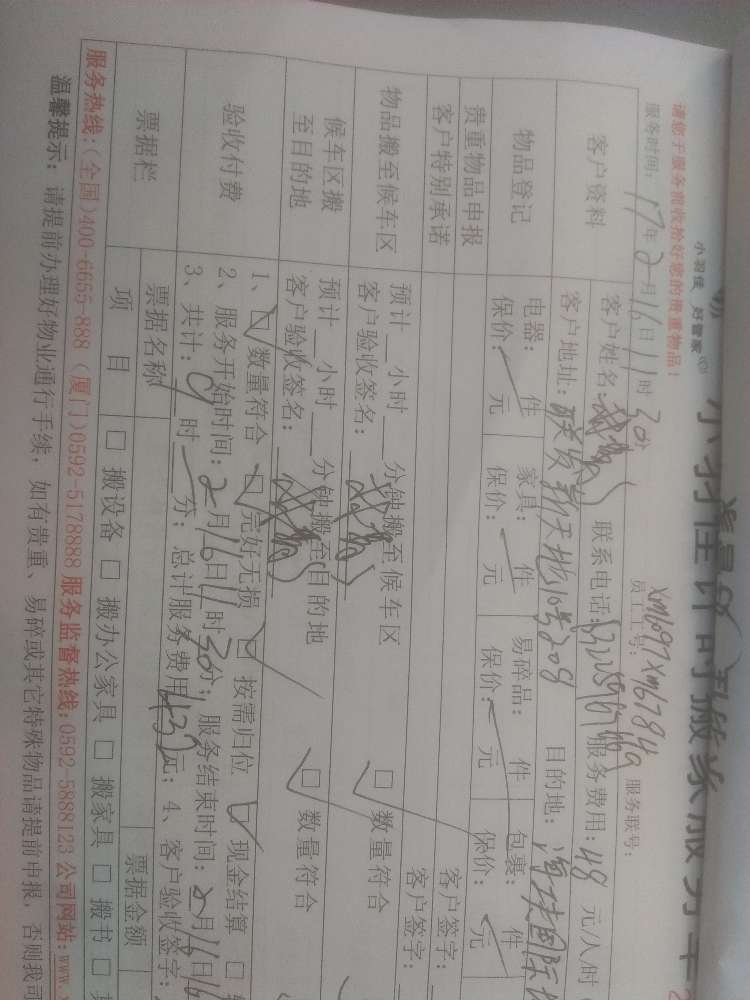 小羽佳计时搬家服务
小羽佳 好管家
请您于服务前收拾好您的贵重物品!
员工工号: xm697 xm6784
服务联号:
服务时间: 17年2月16日11时30分
客户资料
客户姓名:
联系电话:
服务费用: 48 元/人/时
客户地址: 联发新天地10号208
目的地:
物品登记
电器: 件 家具: 件 易碎品: 件 包裹: 件
保价: 元 保价: 元 保价: 元 保价: 元
贵重物品申报
客户签字:
客户特别承诺
客户签字:
物品搬至候车区
预计 小时 分钟搬至候车区 □ 数量符合
客户验收签名:
候车区搬至目的地
预计 小时 分钟搬至目的地 □ 数量符合
客户验收签名:
验收付费
1、□ 数量符合 □ 完好无损 □ 按需归位 □ 现金结算 □
2、服务开始时间: 2月16日11时30分; 服务结束时间: 2月16日
3、共计: 时 分; 总计服务费用 元; 4、客户验收签字:
票据栏
票据名称 票据金额
项 目 □ 搬设备 □ 搬办公家具 □ 搬家具 □ 搬书 □
服务热线:(全国)400-6655-888 (厦门)0592-5178888 服务监督热线:0592-5888123 公司网站:www.
温馨提示: 请提前办理好物业通行手续, 如有贵重、易碎或其它特殊物品请提前申报, 否则我司